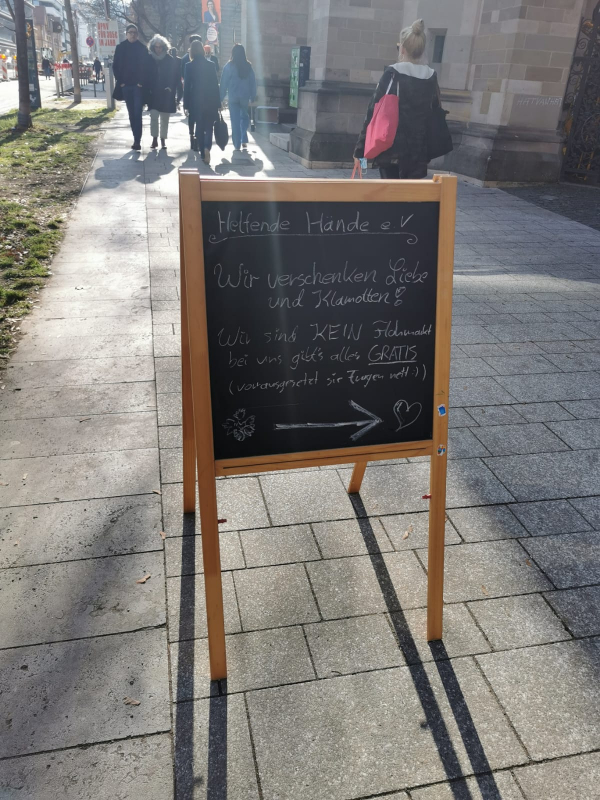 Helfende Hände e V
Wir verschenken Liebe
und Klamotten!
Wir sind KEIN Flohmarkt
bei uns gibt's alles GRATIS
(vorausgesetzt sie fragen nett :))